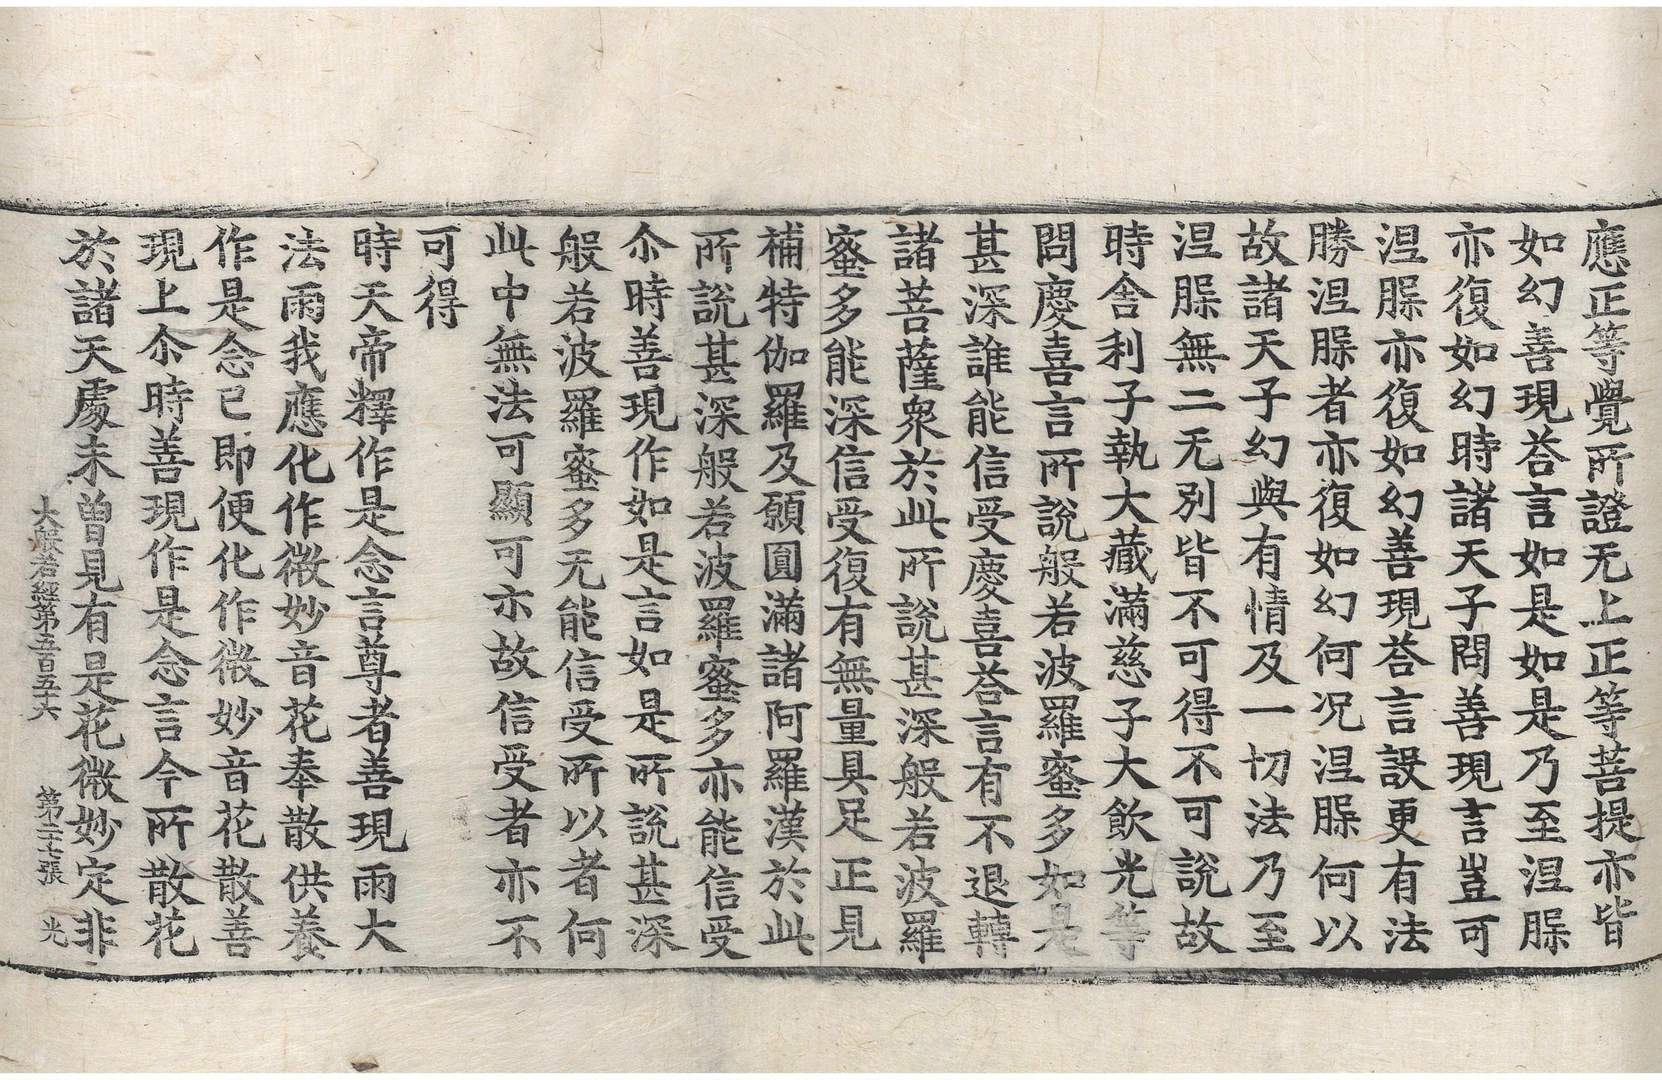 應正等覺所證无上正等菩提亦皆
如幻善現荅言如是如是乃至涅脲
亦復如幻時諸天子問善現言豈可
涅脲亦復如幻善現荅言設更有法
勝涅脲者亦復如幻何况涅脲何以
故諸天子幻與有情及一切法乃至
涅脲無二无別皆不可得不可說故
時舍利子執大藏滿慈子大飲光等
問慶喜言所說般若波羅蜜多如是
甚深誰能信受慶喜荅言有不退轉
諸菩薩衆於此所說甚深般若波羅
蜜多能深信受復有無量具足正見
補特伽羅及願圓滿諸阿羅漢於此
所說甚深般若波羅蜜多亦能信受
尒時善現作如是言如是所說甚深
般若波羅蜜多无能信受所以者何
此中無法可顯可示故信受者亦不
可得
時天帝釋作是念言尊者善現雨大
法雨我應化作微妙音花奉散供養
作是念已即便化作微妙音花散善
現上尒時善現作是念言今所散花
於諸天處未曽見有是花微妙定非
大般若經第五百五十六 第二十七張 光